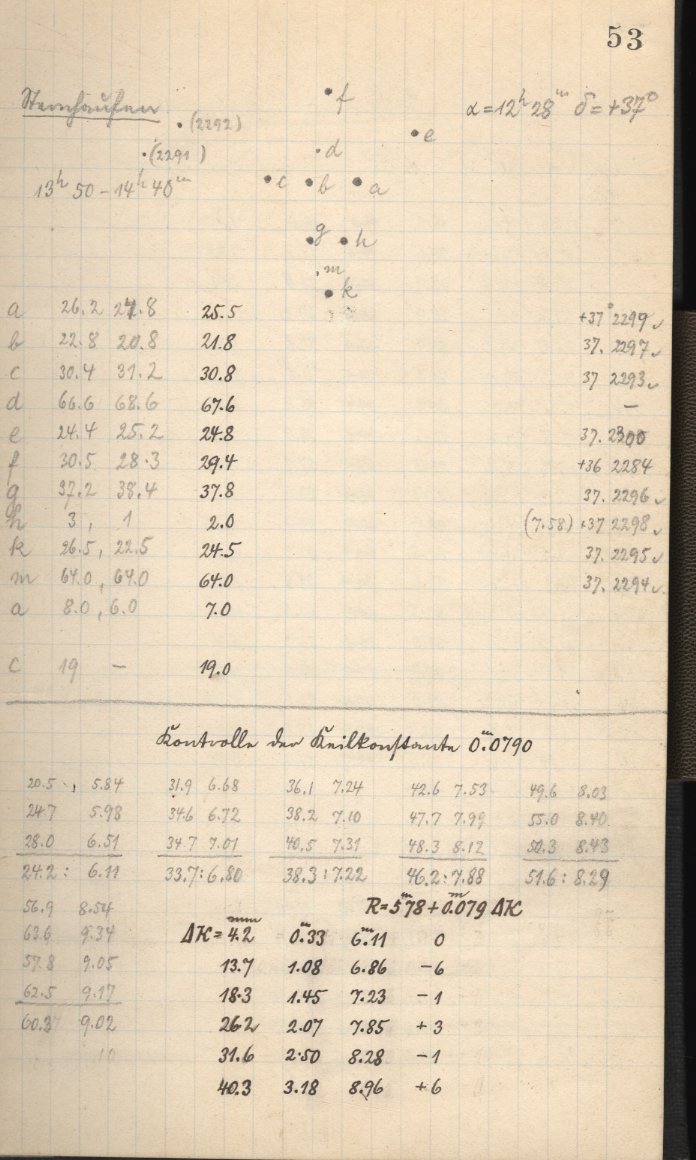 53
Sternhaufen
α = 12ʰ 28ᵐ δ = +37°
f
(2292)
e
(2291)
d
13ʰ 50 – 14ʰ 40ᵐ
c b a
g h
m
k
a 26.2 24.8 25.5 +37° 2299 ✓
b 22.8 20.8 21.8 37. 2297 ✓
c 30.4 31.2 30.8 37 2293 ✓
d 66.6 68.6 67.6 —
e 24.4 25.2 24.8 37. 2300
f 30.5 28.3 29.4 +36 2284
g 37.2 38.4 37.8 37. 2296 ✓
h 3, 1 2.0 (7.58) +37 2298 ✓
k 26.5, 22.5 24.5 37. 2295 ✓
m 64.0, 64.0 64.0 37. 2294 ✓
a 8.0, 6.0 7.0
c 19 — 19.0
Kontrolle der Keilkonstante 0ᵐ.0790
20.5 , 5.84 31.9 6.68 36.1 7.24 42.6 7.53 49.6 8.03
24.7 5.98 34.6 6.72 38.2 7.10 47.7 7.99 55.0 8.40
28.0 6.51 34.7 7.01 40.5 7.31 48.3 8.12 50.3 8.43
24.2 : 6.11 33.7 : 6.80 38.3 : 7.22 46.2 : 7.88 51.6 : 8.29
56.9 8.54 R = 5ᵐ.78 + 0ᵐ.079 ΔK
63.6 9.34 ΔK = 4.2ᵐᵐ 0ᵐ.33 6ᵐ.11 0
57.8 9.05 13.7 1.08 6.86 –6
62.5 9.17 18.3 1.45 7.23 –1
60.3 9.02 26.2 2.07 7.85 +3
31.6 2.50 8.28 –1
40.3 3.18 8.96 +6